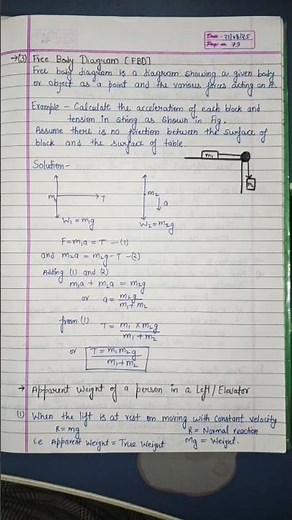 Date - 21/08/25
Page no. 79
→(3) Free Body Diagram [FBD]
Free body diagram is a diagram showing a given body
or object as a point and the various forces acting on it.
Example - Calculate the acceleration of each block and
tension in string as shown in Fig.
Assume there is no friction between the surface of
block and the surface of table.
m₁
Solution -
m₁ → T
W₁ = m₁g
m₂ ↓a
W₂ = m₂g
F = m₁a = T -(1)
and m₂a = m₂g - T -(2)
Adding (1) and (2)
m₁a + m₂a = m₂g
or a = m₂g / m₁+m₂
from (1) T = m₁ × m₂g / m₁ + m₂
or T = m₁m₂g / m₁+m₂
→ Apparent Weight of a person in a Left/Elevator
(1) When the lift is at rest on moving with constant velocity
R = mg R = Normal reaction
i.e Apparent Weight = True Weight Mg = Weight.